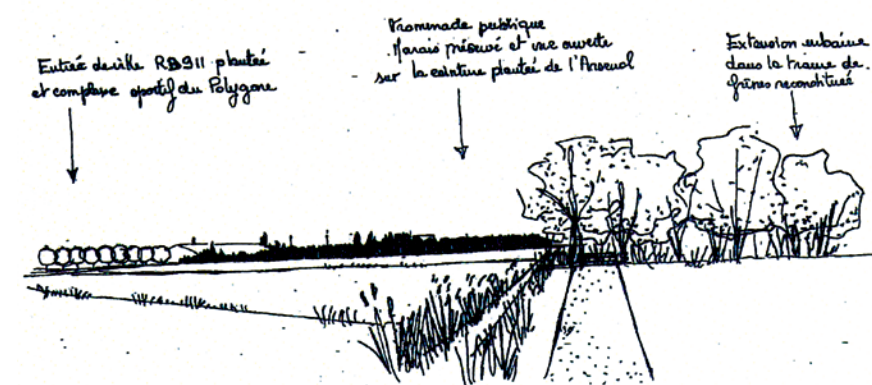 Entrée de ville RD911 plantée
et complexe sportif du Polygone
Promenade publique
Marais préservé et vue ouverte
sur la ceinture plantée de l'Arsenal
Extension urbaine
dans la trame de
frênes reconstituée